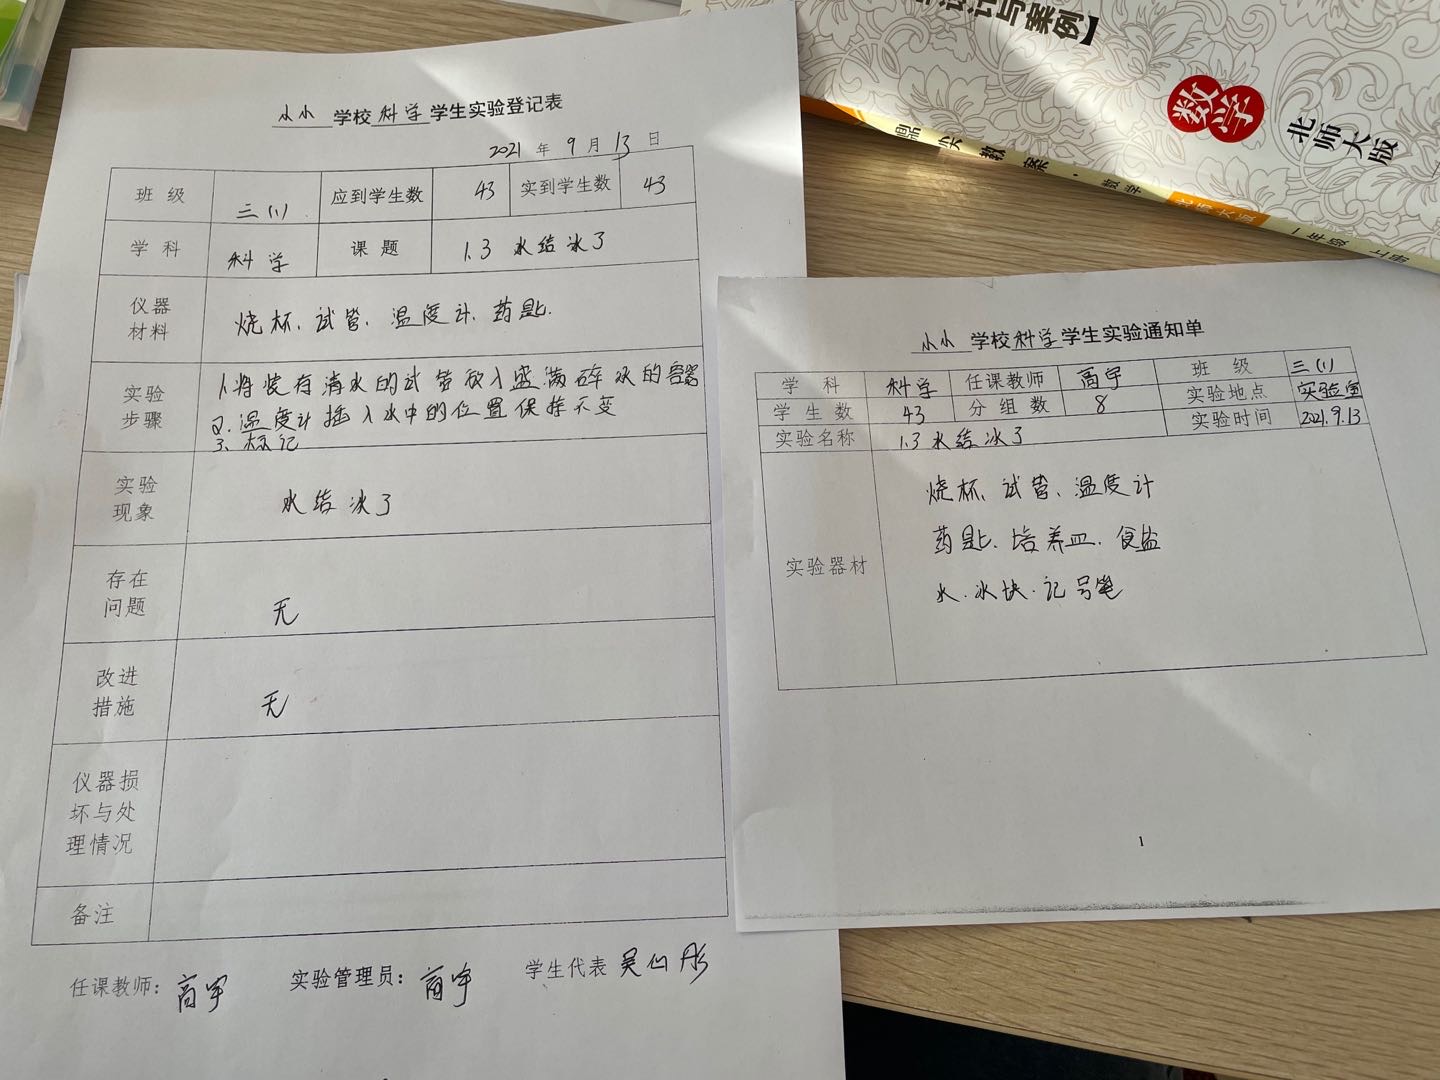 小小 学校 科学 学生实验登记表
2021 年 9 月 13 日
班 级 三(1) 应到学生数 43 实到学生数 43
学 科 科学 课 题 1.3 水结冰了
仪器材料 烧杯、试管、温度计、药匙.
实验步骤
1.将装有清水的试管放入盛满碎冰的容器
2.温度计插入水中的位置保持不变
3、标记
实验现象 水结冰了
存在问题 无
改进措施 无
仪器损坏与处理情况
备注
任课教师: 高宇 实验管理员: 高宇 学生代表
小小 学校 科学 学生实验通知单
学 科 科学 任课教师 高宇 班 级 三(1)
学 生 数 43 分 组 数 8 实验地点 实验室
实验名称 1.3 水结冰了 实验时间 2021.9.13
实验器材
烧杯、试管、温度计
药匙、培养皿、食盐
水、冰块、记号笔
1
计与案例】
数学
北师大版
鼎尖教案·数学 北师大版 一年级 上册